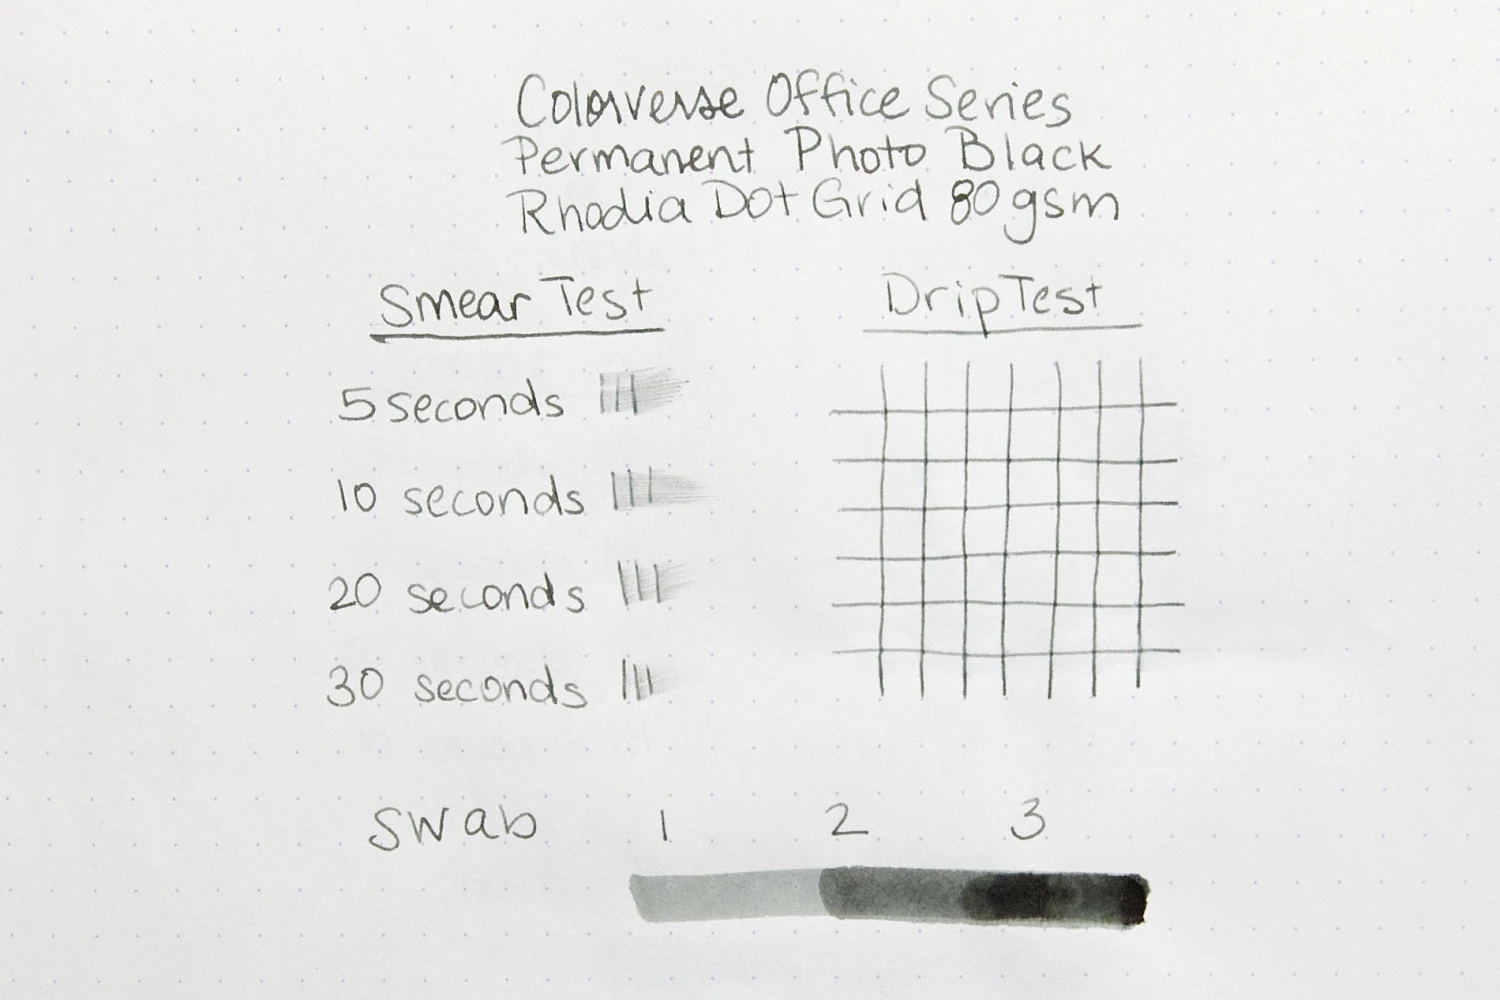 Colorverse Office Series
Permanent Photo Black
Rhodia Dot Grid 80gsm
Smear Test
5 seconds
10 seconds
20 seconds
30 seconds
Drip Test
Swab 1 2 3